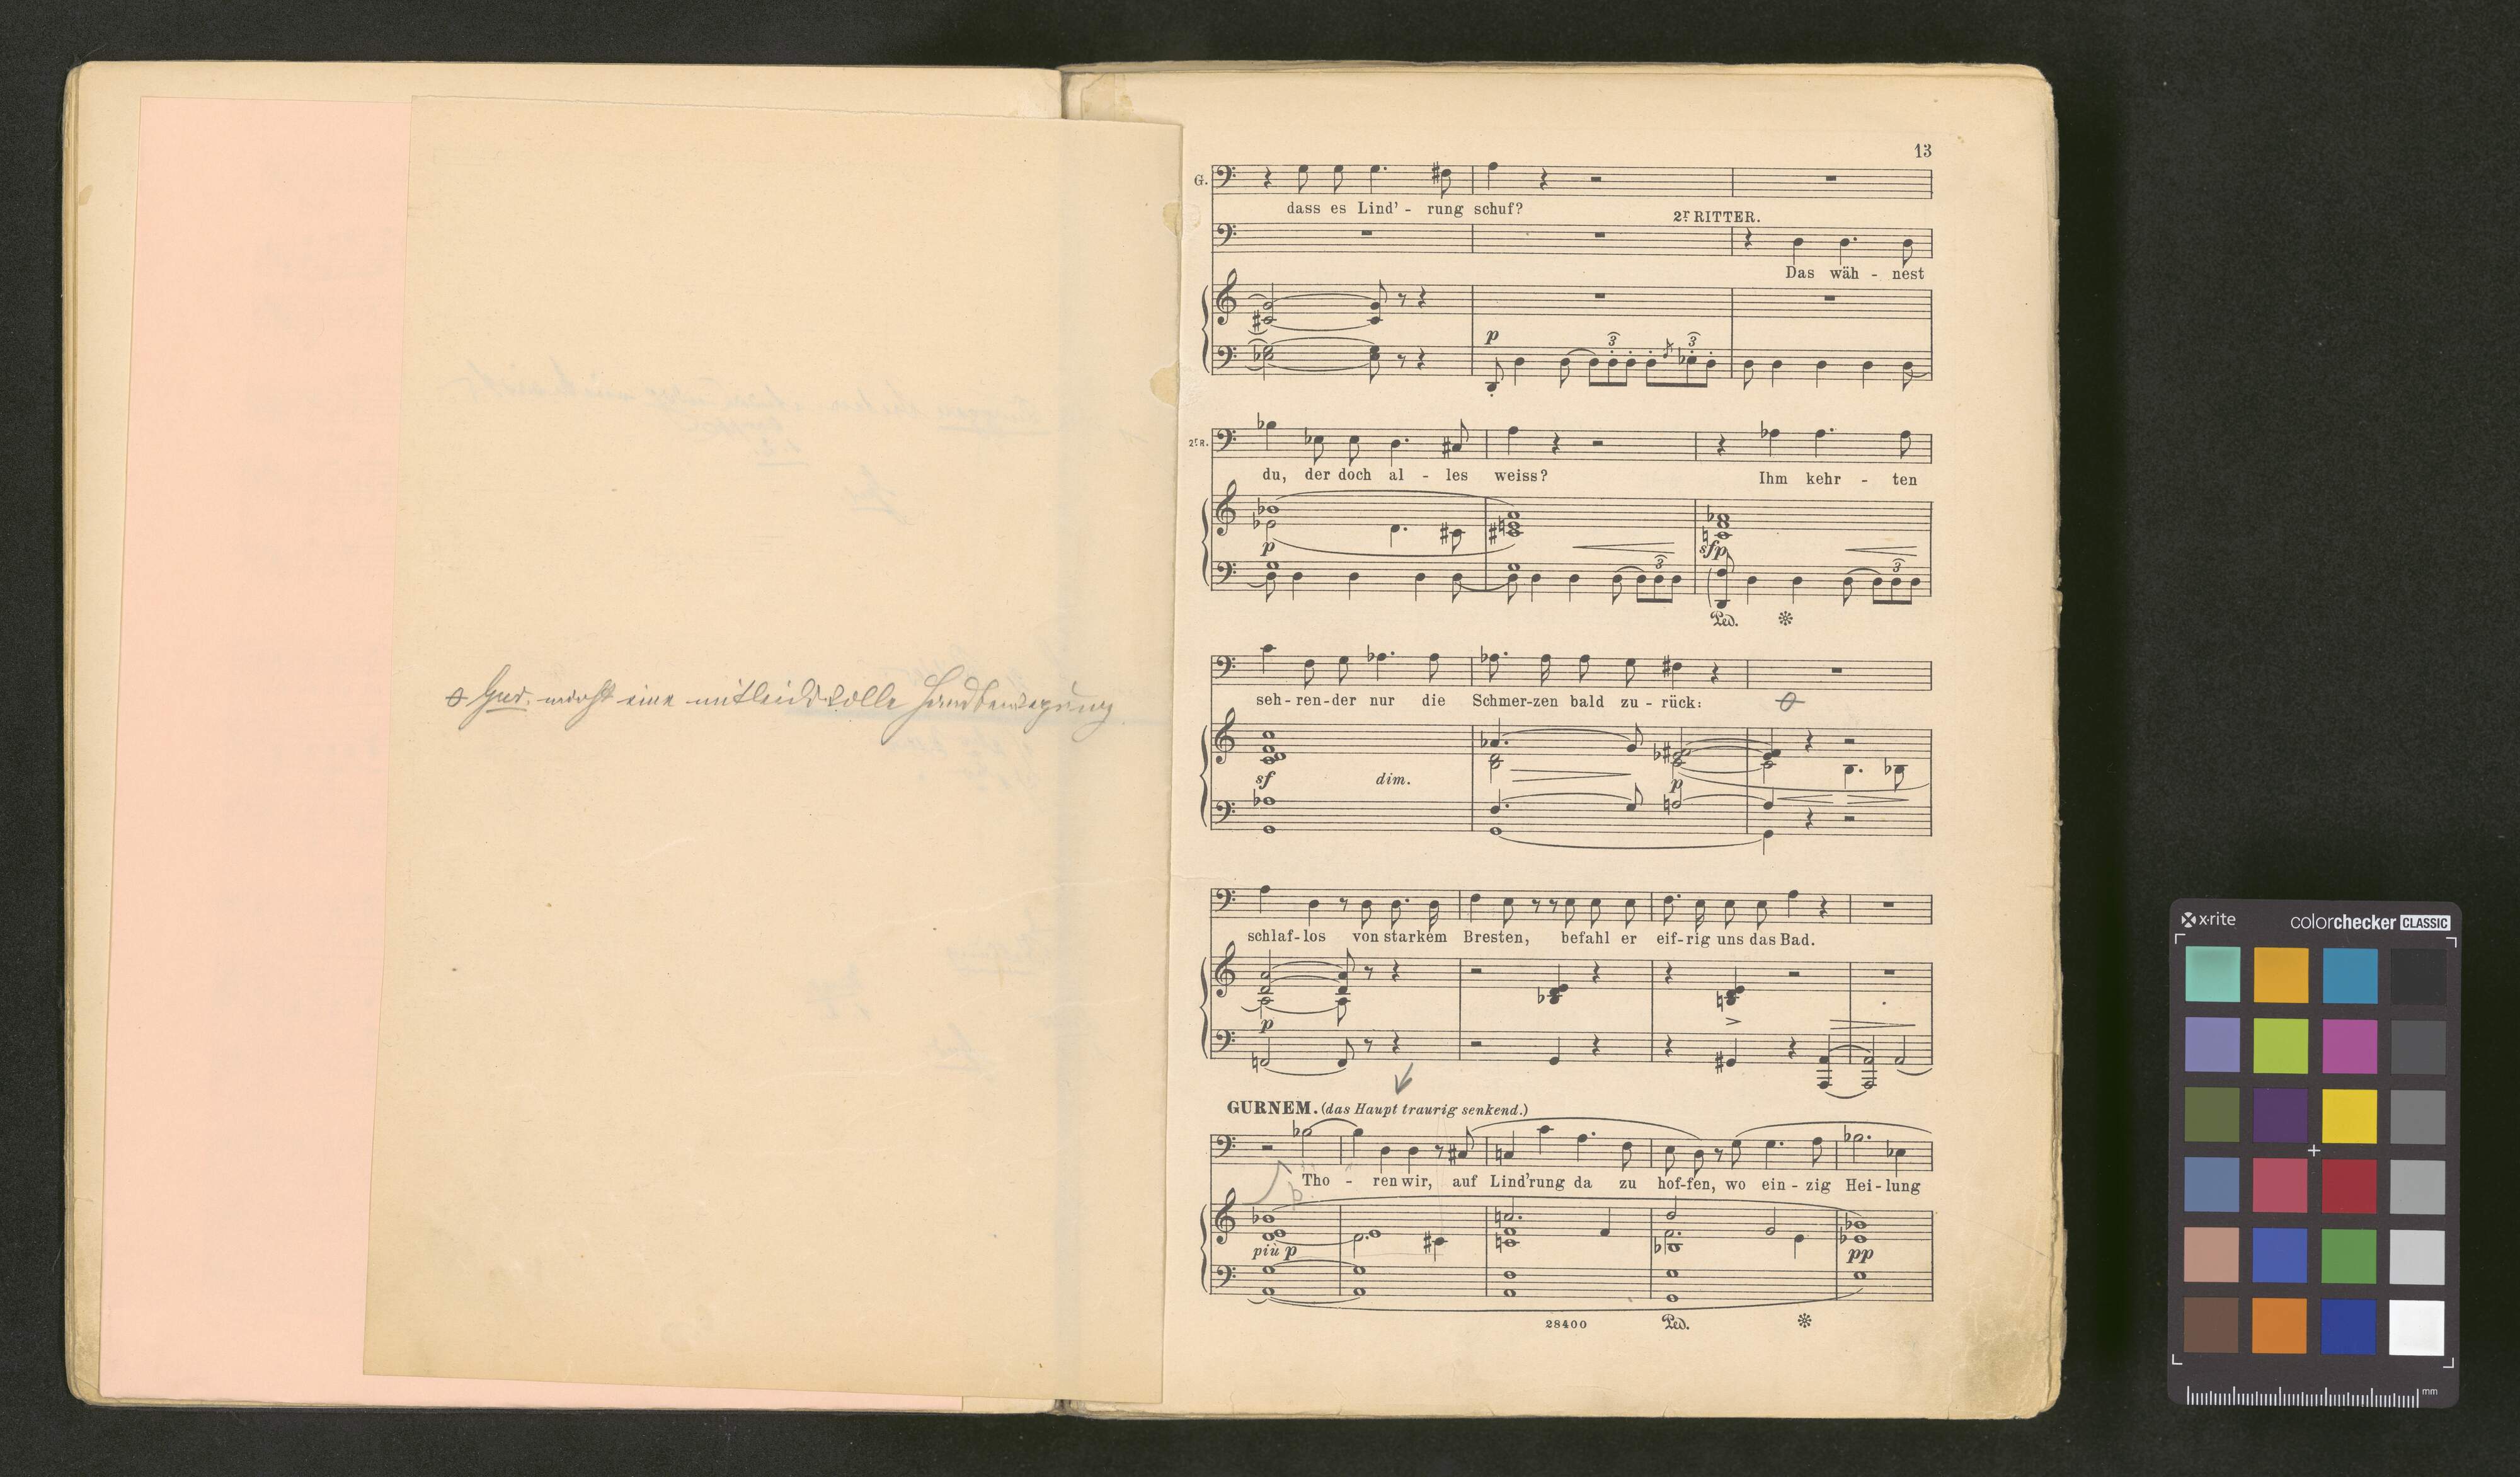 ⌀ Gur. macht eine mitleidsvolle Handbewegung
13
G.
dass es Lind' - rung schuf?
2r RITTER.
Das wäh - nest
p
3
3
2r R.
du, der doch al - les weiss?
Ihm kehr - ten
p
sfp
3
3
Ped.
seh - ren - der nur die Schmer - zen bald zu - rück:
⌀
sf
dim.
p
schlaf - los von starkem Bresten, befahl er eif - rig uns das Bad.
p
GURNEM. (das Haupt traurig senkend.)
Tho - ren wir, auf Lind'rung da zu hof - fen, wo ein - zig Hei - lung
p
più p
pp
28400
Ped.
x·rite
colorchecker CLASSIC
mm